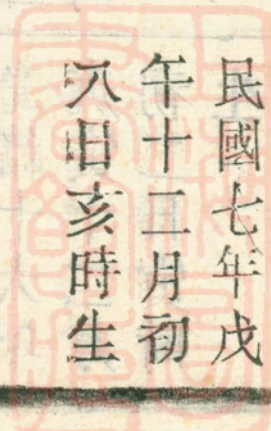 民國七年戊
午十二月初
八日亥時生